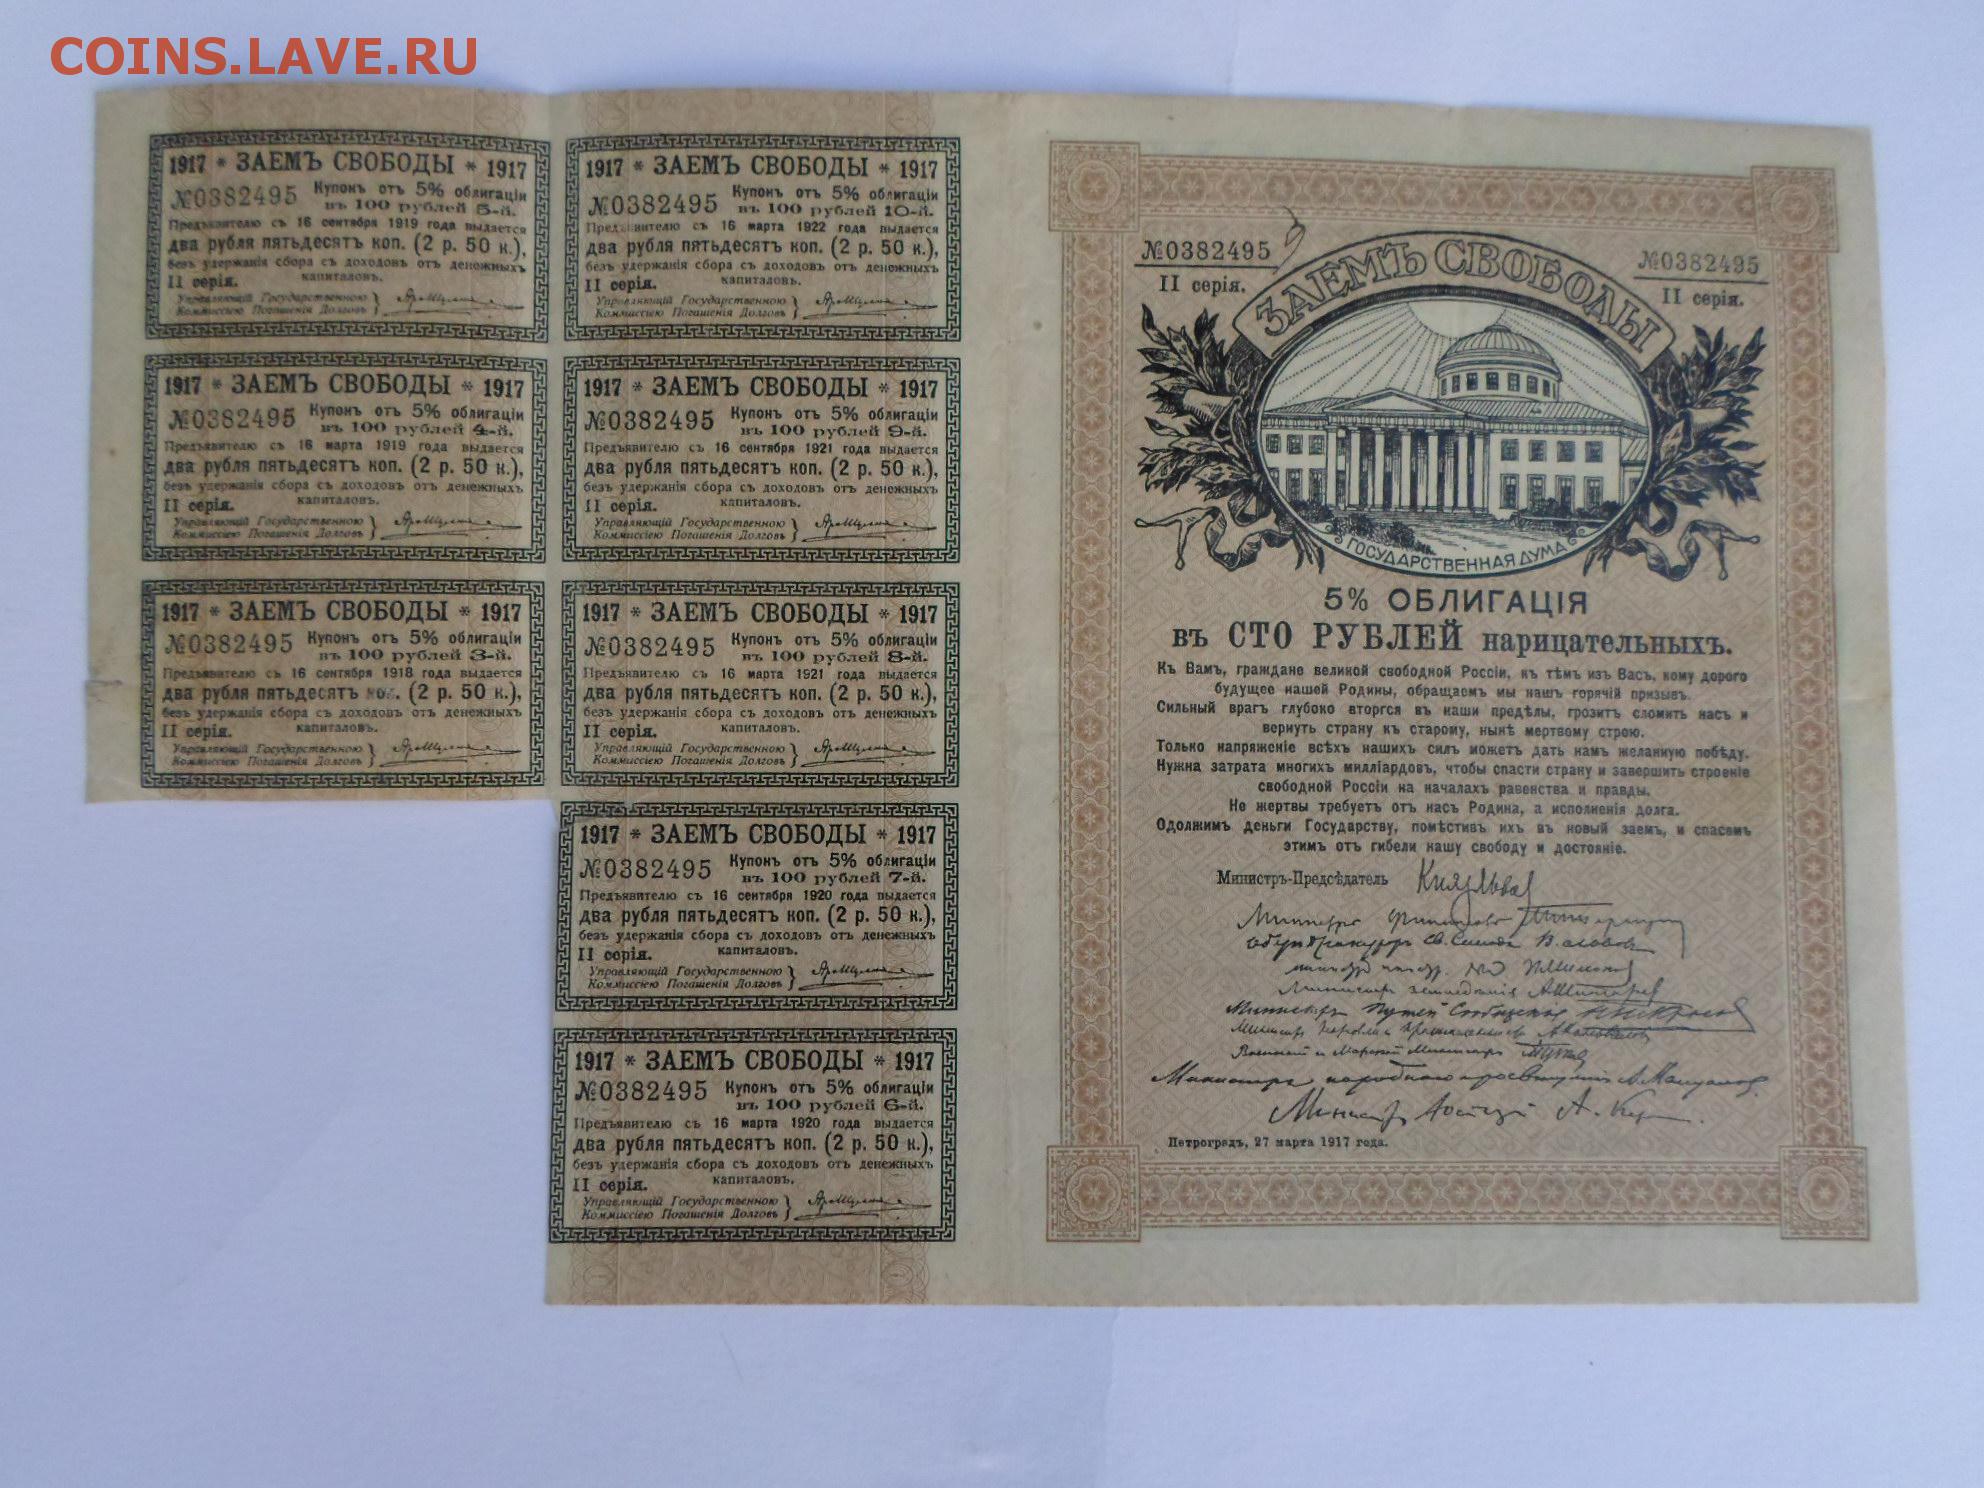 COINS.LAVE.RU
1917 * ЗАЕМЪ СВОБОДЫ * 1917
№0382495 Купонъ отъ 5% облигаціи
въ 100 рублей 5-й.
Предъявителю съ 16 сентября 1919 года выдается
два рубля пятьдесятъ коп. (2 р. 50 к.),
безъ удержанія сбора съ доходовъ отъ денежныхъ
капиталовъ.
II серія.
Управляющій Государственною
Коммиссіею Погашенія Долговъ
1917 * ЗАЕМЪ СВОБОДЫ * 1917
№0382495 Купонъ отъ 5% облигаціи
въ 100 рублей 4-й.
Предъявителю съ 16 марта 1919 года выдается
два рубля пятьдесятъ коп. (2 р. 50 к.),
безъ удержанія сбора съ доходовъ отъ денежныхъ
капиталовъ.
II серія.
Управляющій Государственною
Коммиссіею Погашенія Долговъ
1917 * ЗАЕМЪ СВОБОДЫ * 1917
№0382495 Купонъ отъ 5% облигаціи
въ 100 рублей 3-й.
Предъявителю съ 16 сентября 1918 года выдается
два рубля пятьдесятъ коп. (2 р. 50 к.),
безъ удержанія сбора съ доходовъ отъ денежныхъ
капиталовъ.
II серія.
Управляющій Государственною
Коммиссіею Погашенія Долговъ
1917 * ЗАЕМЪ СВОБОДЫ * 1917
№0382495 Купонъ отъ 5% облигаціи
въ 100 рублей 10-й.
Предъявителю съ 16 марта 1922 года выдается
два рубля пятьдесятъ коп. (2 р. 50 к.),
безъ удержанія сбора съ доходовъ отъ денежныхъ
капиталовъ.
II серія.
Управляющій Государственною
Коммиссіею Погашенія Долговъ
1917 * ЗАЕМЪ СВОБОДЫ * 1917
№0382495 Купонъ отъ 5% облигаціи
въ 100 рублей 9-й.
Предъявителю съ 16 сентября 1921 года выдается
два рубля пятьдесятъ коп. (2 р. 50 к.),
безъ удержанія сбора съ доходовъ отъ денежныхъ
капиталовъ.
II серія.
Управляющій Государственною
Коммиссіею Погашенія Долговъ
1917 * ЗАЕМЪ СВОБОДЫ * 1917
№0382495 Купонъ отъ 5% облигаціи
въ 100 рублей 8-й.
Предъявителю съ 16 марта 1921 года выдается
два рубля пятьдесятъ коп. (2 р. 50 к.),
безъ удержанія сбора съ доходовъ отъ денежныхъ
капиталовъ.
II серія.
Управляющій Государственною
Коммиссіею Погашенія Долговъ
1917 * ЗАЕМЪ СВОБОДЫ * 1917
№0382495 Купонъ отъ 5% облигаціи
въ 100 рублей 7-й.
Предъявителю съ 16 сентября 1920 года выдается
два рубля пятьдесятъ коп. (2 р. 50 к.),
безъ удержанія сбора съ доходовъ отъ денежныхъ
капиталовъ.
II серія.
Управляющій Государственною
Коммиссіею Погашенія Долговъ
1917 * ЗАЕМЪ СВОБОДЫ * 1917
№0382495 Купонъ отъ 5% облигаціи
въ 100 рублей 6-й.
Предъявителю съ 16 марта 1920 года выдается
два рубля пятьдесятъ коп. (2 р. 50 к.),
безъ удержанія сбора съ доходовъ отъ денежныхъ
капиталовъ.
II серія.
Управляющій Государственною
Коммиссіею Погашенія Долговъ
№0382495
II серія.
ЗАЕМЪ СВОБОДЫ
№0382495
II серія.
ГОСУДАРСТВЕННАЯ ДУМА
5% ОБЛИГАЦІЯ
въ СТО РУБЛЕЙ нарицательныхъ.
Къ Вамъ, граждане великой свободной Россіи, къ тѣмъ изъ Васъ, кому дорого
будущее нашей Родины, обращаемъ мы нашъ горячій призывъ.
Сильный врагъ глубоко вторгся въ наши предѣлы, грозитъ сломить насъ и
вернуть страну къ старому, нынѣ мертвому строю.
Только напряженіе всѣхъ нашихъ силъ можетъ дать намъ желанную побѣду.
Нужна затрата многихъ милліардовъ, чтобы спасти страну и завершить строеніе
свободной Россіи на началахъ равенства и правды.
Не жертвы требуетъ отъ насъ Родина, а исполненія долга.
Одолжимъ деньги Государству, помѣстивъ ихъ въ новый заемъ, и спасемъ
этимъ отъ гибели нашу свободу и достояніе.
Министръ-Предсѣдатель Князь Львов
Министръ финансовъ
Оберъ Прокуроръ Св. Синода В. Львов
Министръ земледѣлія А. Шингарев
Министръ Путей Сообщенія
Министръ Торговли и Промышленности
Военный и Морской Министръ
Министръ народного просвѣщенія А. Мануйлов.
Министръ Юстиціи А. Кер
Петроградъ, 27 марта 1917 года.